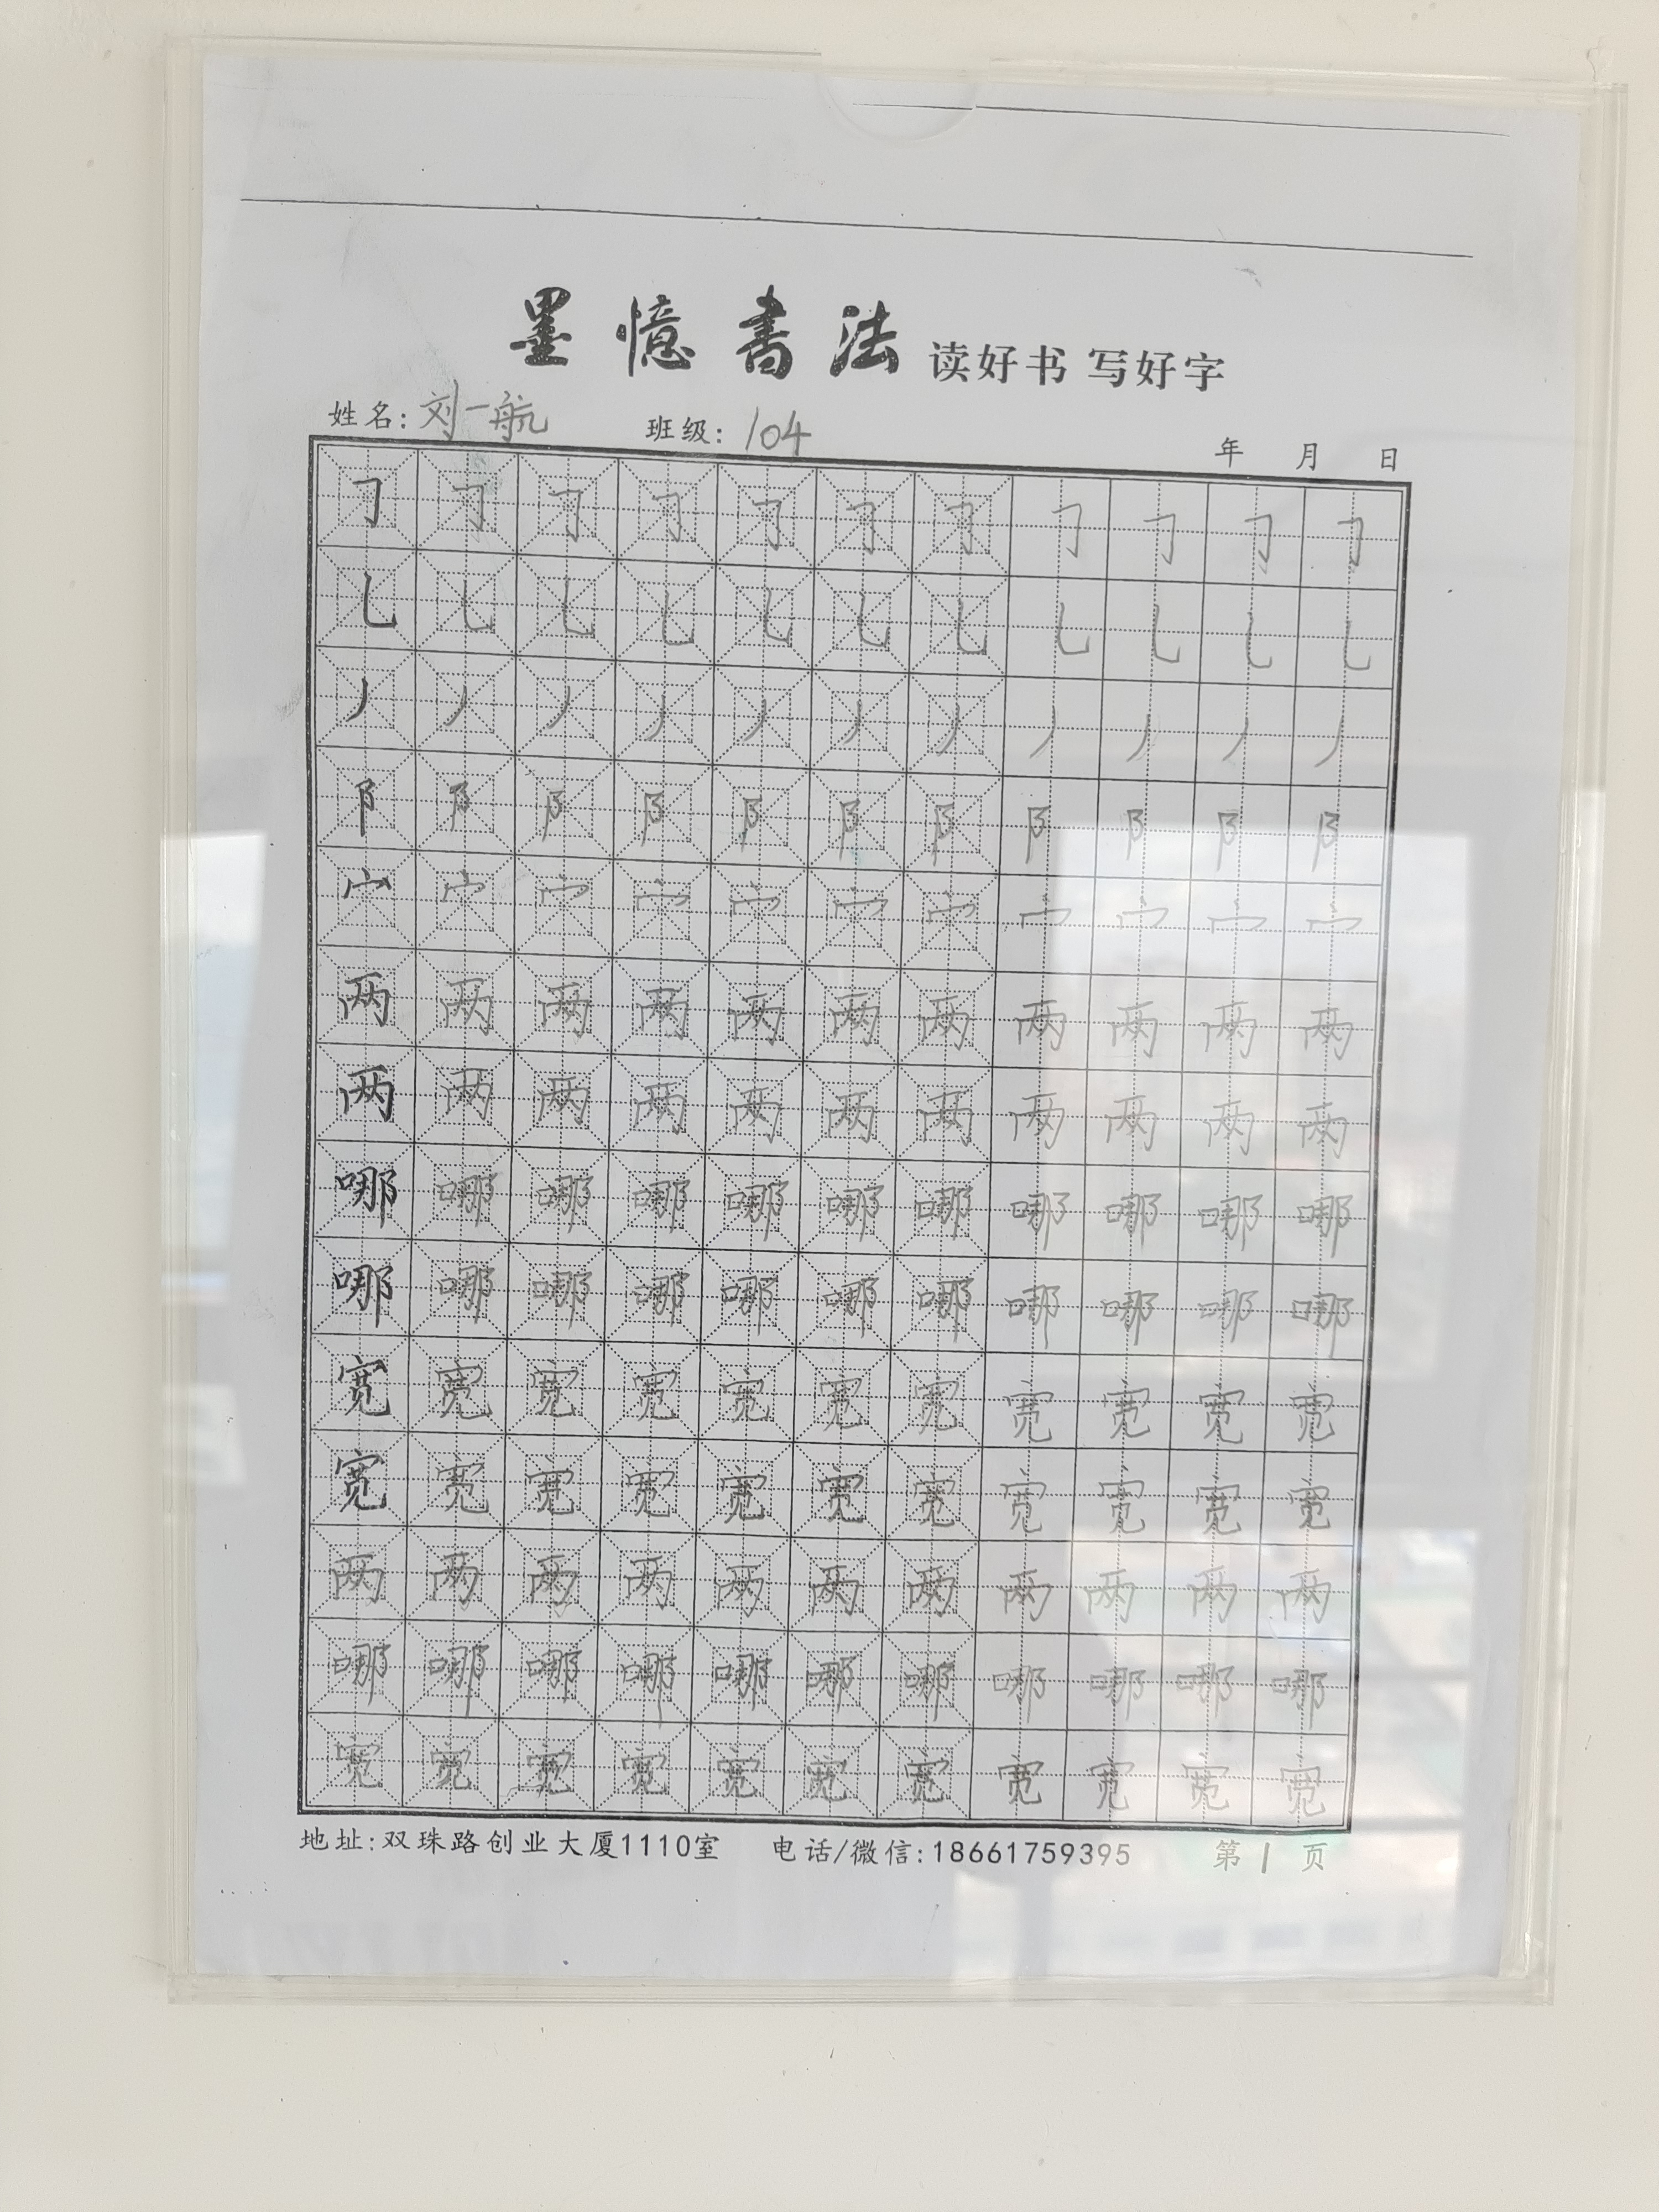 墨憶書法 读好书 写好字
姓名: 刘一航 班级: 104 年 月 日
㇆ ㇆ ㇆ ㇆ ㇆ ㇆ ㇆ ㇆ ㇆ ㇆ ㇆
乚 乚 乚 乚 乚 乚 乚 乚 乚 乚 乚
丿 丿 丿 丿 丿 丿 丿 丿 丿 丿 丿
阝 阝 阝 阝 阝 阝 阝 阝 阝 阝 阝
宀 宀 宀 宀 宀 宀 宀 宀 宀 宀 宀
两 两 两 两 两 两 两 两 两 两 两
两 两 两 两 两 两 两 两 两 两 两
哪 哪 哪 哪 哪 哪 哪 哪 哪 哪 哪
哪 哪 哪 哪 哪 哪 哪 哪 哪 哪 哪
宽 宽 宽 宽 宽 宽 宽 宽 宽 宽 宽
宽 宽 宽 宽 宽 宽 宽 宽 宽 宽 宽
两 两 两 两 两 两 两 两 两 两 两
哪 哪 哪 哪 哪 哪 哪 哪 哪 哪 哪
宽 宽 宽 宽 宽 宽 宽 宽 宽 宽 宽
地址:双珠路创业大厦1110室 电话/微信:18661759395 第 1 页